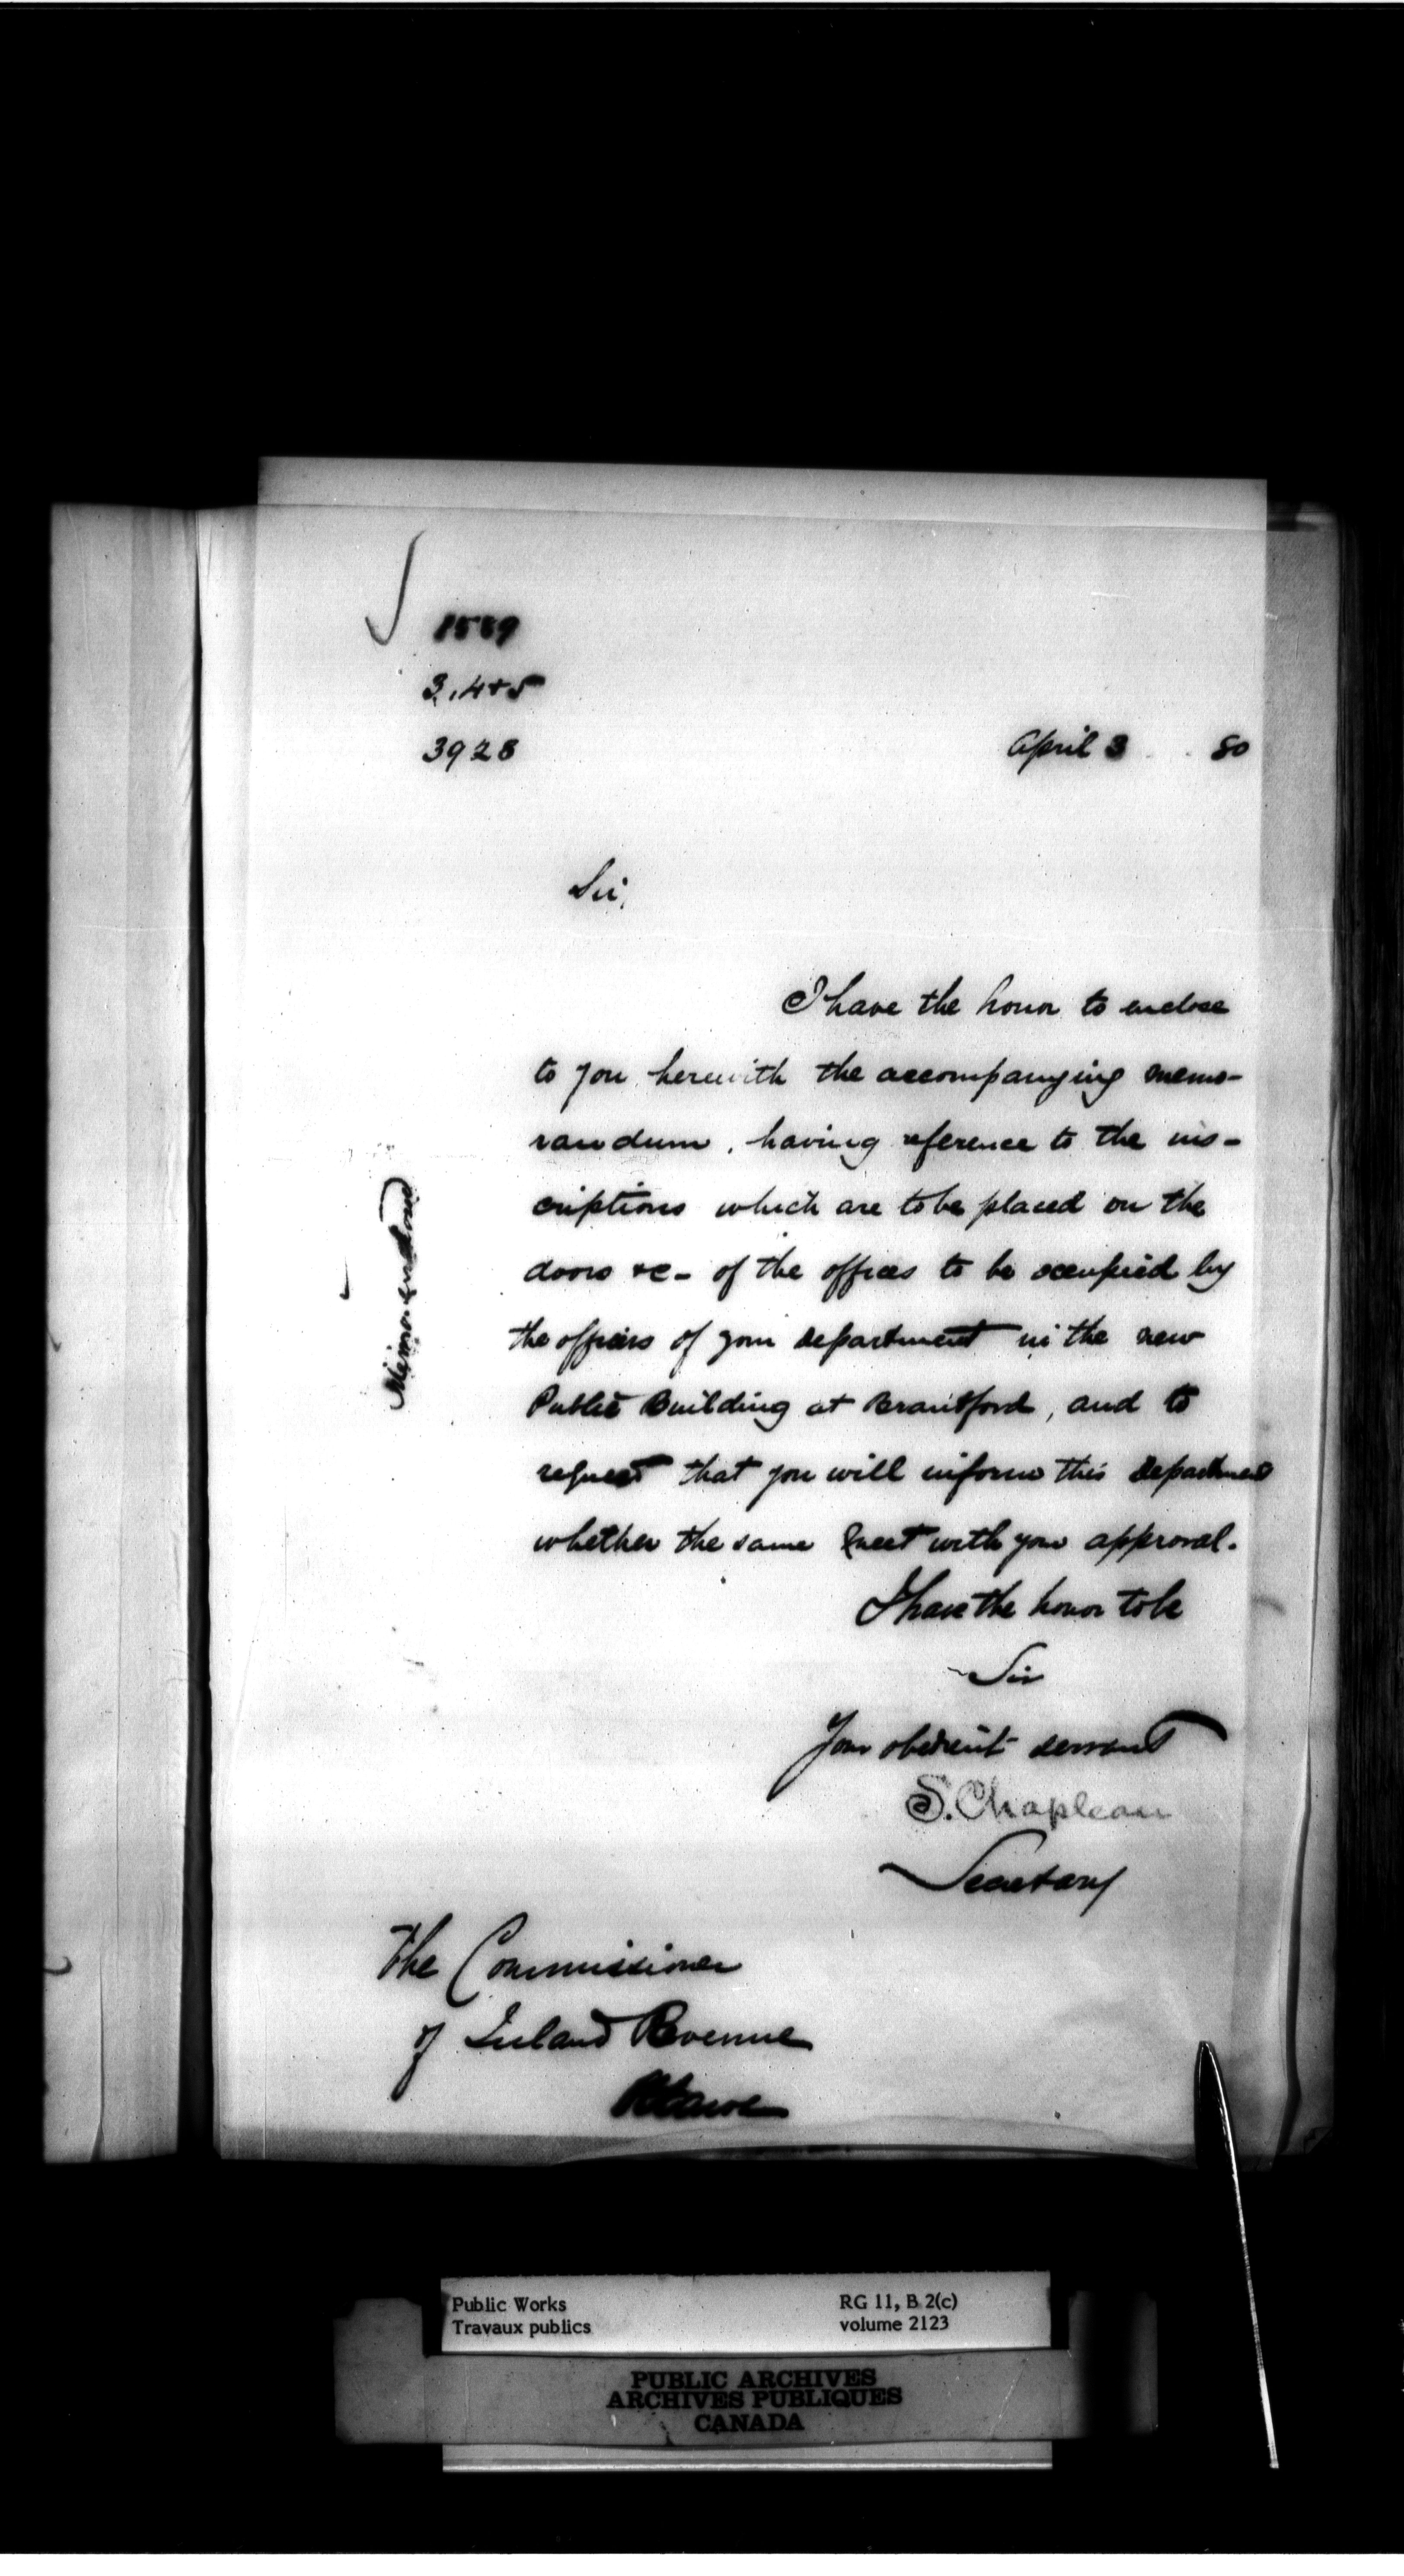 1589
3, 4 + 5
3928
April 3 80
Sir,
I have the honor to enclose
to you herewith the accompanying memo-
randum, having reference to the ins-
criptions which are to be placed on the
doors &c- of the offices to be occupied by
the officers of your department in the new
Public Building at Brantford, and to
request that you will inform this department
whether the same meet with your approval.
I have the honor to be
Sir
Your obedient servant
S. Chapleau
Secretary
The Commissioner
of Inland Revenue
Ottawa
Memorandum
Public Works
Travaux publics
RG 11, B 2(c)
volume 2123
PUBLIC ARCHIVES
ARCHIVES PUBLIQUES
CANADA